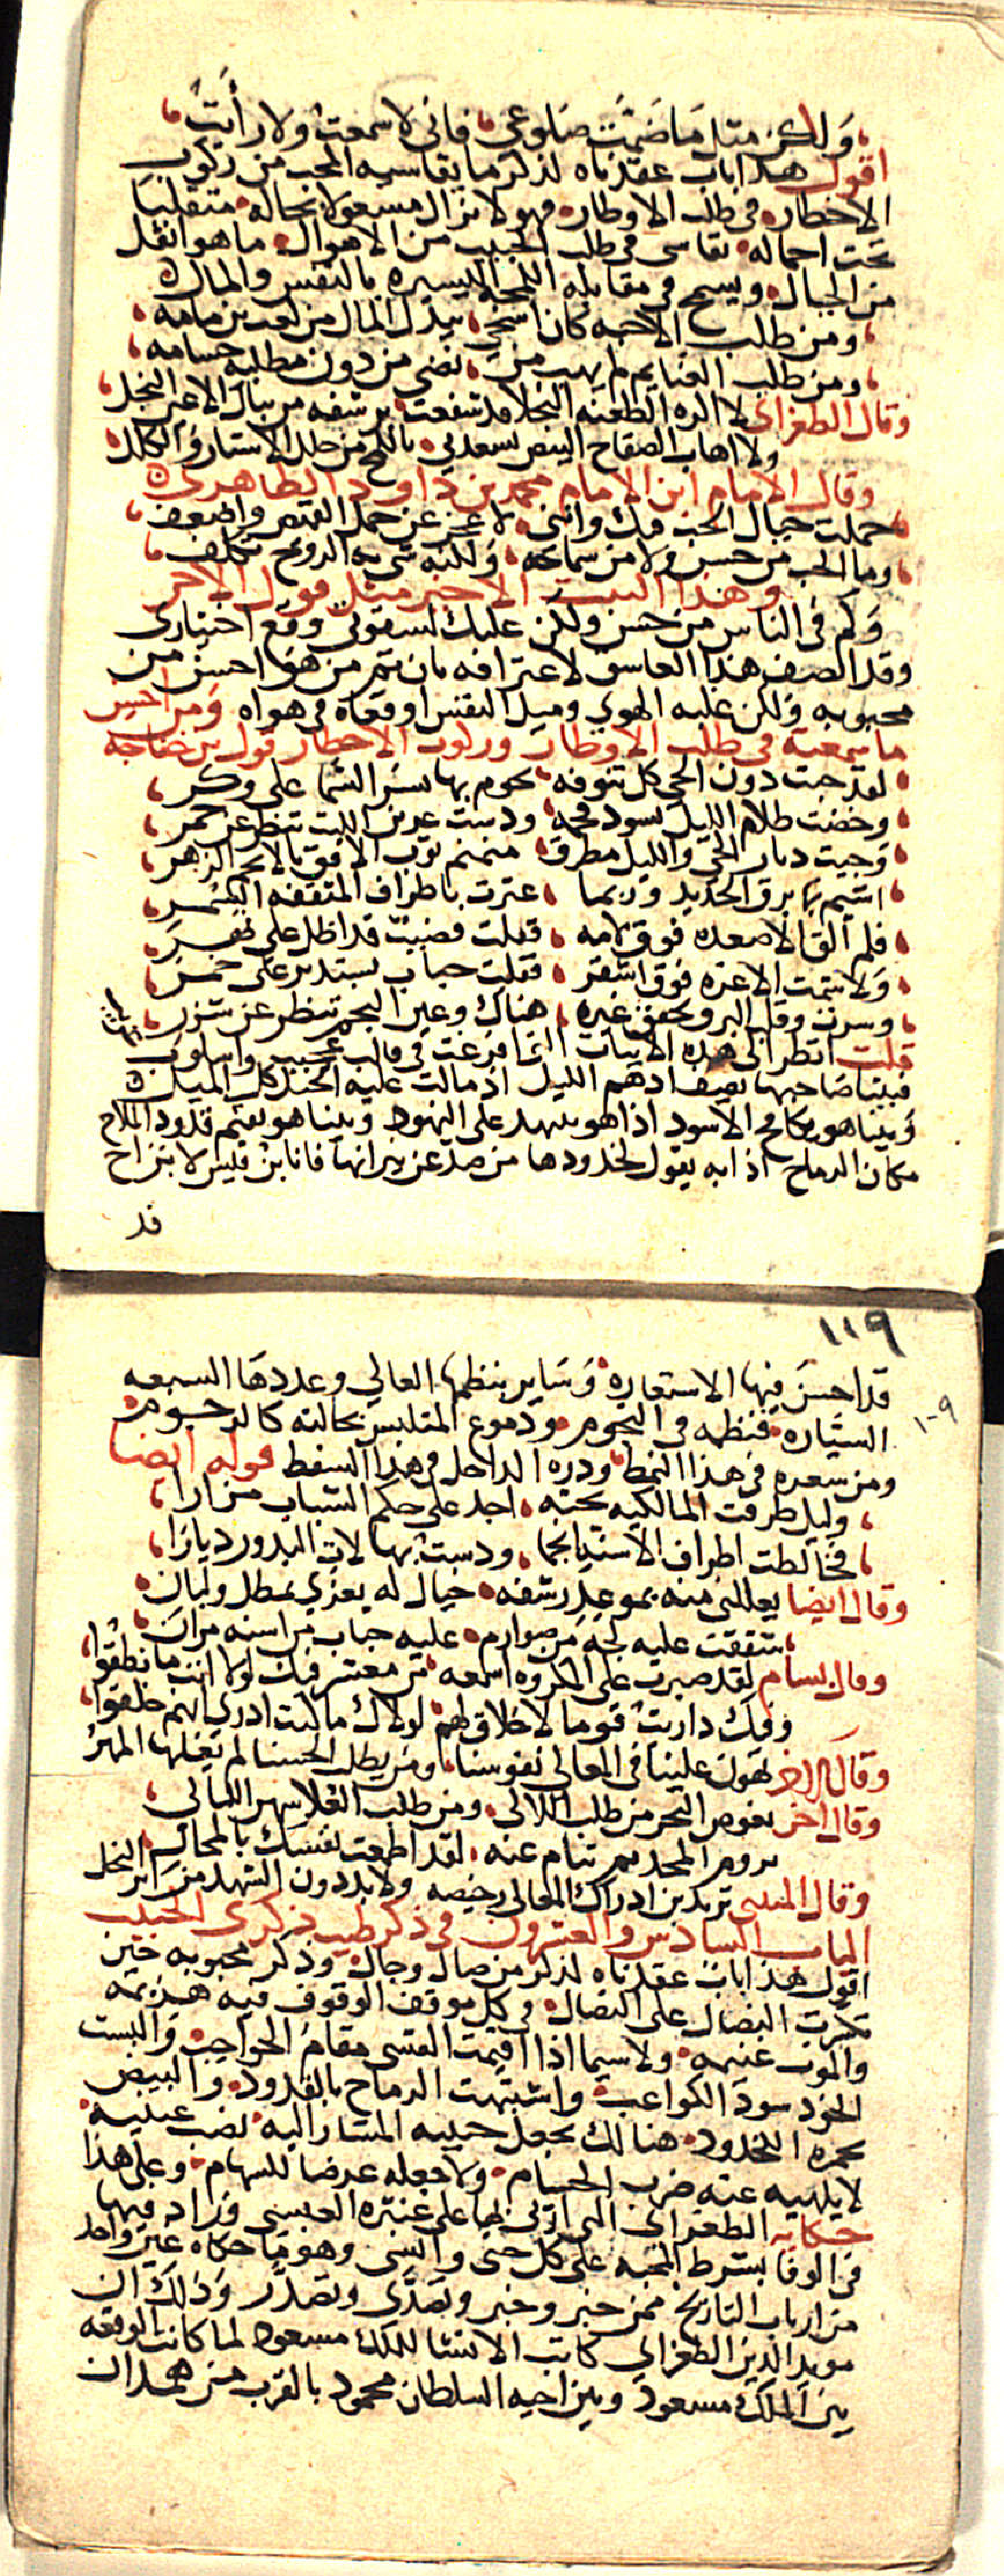 ولكن مثل ما ضمت ضلوعي فاني لا سمعت ولا رأيت
اقول هذا باب عقدناه لذكر ما يقاسيه المحب من ركوب
الاخطار في طلب الاوطار فهو لا يزال مشغولا بحاله متقلبا
تحت احماله يقاسي في طلب الحبيب من الاهوال ما هو اثقل
من الجبال ويسمح في مقابلة اللمحة اليسيرة بالنفس والمال
ومن طلب الاحبه كان اسخى ببذل المال من كعب بن مامه
ومن طلب الغنايم لم يهب من نضى من دون مطلبه حسامه
وقال الطغراي لا اكره الطعنه النجلا قد شفعت برشفه من نبال الاعين النجل
ولا اهاب الصفاح البيض تسعدني باللمح من خلل الاستار والكلل
وقال الامام ابن الامام محمد بن داود الظاهري
حملت جبال الحب فيك وانني لاعجز عن حمل القميص واضعف
وما الحب من حسن ولا من سماحه ولكنه شي به الروح تكلف
وهذا البيت الاخير مثل قول الاخر
وكم في الناس من حسن ولكن عليك لشقوتي وقع اختياري
وقد انصف هذا العاشق لاعترافه بان ثم من هو احسن من
محبوبه ولكن غلبه الهوى وميل النفس اوقعاه في هواه ومن احسن
ما سمعته في طلب الاوطار وركوب الاخطار قول بن خفاجه
لقد جبت دون الحي كل تنوفه يحوم بها نسر السما على وكر
وخضت ظلام الليل يسود فحمه ودست عرين الليث ينظر عن جمر
وجيت ديار الحي والليل مطرق منمنم ثوب الافق بالانجم الزهر
اشيم بها برق الحديد وربما عثرت باطراف المثقفه السمر
فلم الق الا صعده فوق لامه فقلت قضيب قد اظل على نهر
ولا شمت الا غره فوق اشقر فقلت حباب يستدير على خمر
وسرت وقلب البرق يخفق غيره هناك وعين النجم تنظر عن شزر
قلت انظر الى هذه الابيات التي افرغت في قالب عجيب واسلوب
فبينا صاحبها يصف ادهم الليل اذ مالت عليه الخيل كل الميل
وبينا هو يكافح الاسود اذا هو ينهد على النهود وبينا هو يقيم قدود الملاح
مكان الرماح اذا به يقول لخدودها من صد عن نيرانها فانا بن قيس لا براح
قد
١١٩
١٠٩
قد احسن فيها الاستعارة وساير بنظمها العالي وعددها السبعه
السيارة فنظمه في النجوم ودموع المتلبس بحالته كالرجوم
ومن شعره في هذا النمط ودره الداخل في هذا السفط قوله ايضا
وليل طرقت المالكيه تحته اجد على حكم الشباب مزارا
فخالطت اطراف الاسنه انجما ودست بهالات البدور ديارا
وقال ايضا يعللني منه بموعد رشفه خيال له يغري بمطل وليان
شققت عليه لجه من صوارم عليه حباب من اسنه مران
وقال بسام لقد صبرت على المكروه اسمعه من معشر فيك لولا انت ما نطقوا
وفيك داريت قوما لا خلاق لهم لولاك ما كنت ادري انهم خلقوا
وقال الاخر تهون علينا في المعالي نفوسنا ومن يطلب الحسنا لم يغلها المهر
وقال اخر يغوص البحر من طلب اللالي ومن طلب العلا سهر الليالي
تروم المجد ثم تنام عنه لقد اطمعت نفسك بالمحال
وقال المتنبي تريدين ادراك المعالي رخيصه ولا بد دون الشهد من ابر النحل
الباب السادس والعشرون في ذكر طيب ذكرى الحبيب
اقول هذا باب عقدناه لذكر من صال وجال وذكر محبوبه حين
تكسرت النصال على النصال في كل موقف الوقوف فيه هزيمه
والموت غنيمه ولا سيما اذا اقيمت القسي مقام الحواجب والبست
الخود سود الكواعب واشتبهت الرماح بالقدود والبيض
بحمرة الخدود هنالك يجعل حبيبه المشار اليه نصب عينيه
لا يلهيه عنه ضرب الحسام ولا جعله عرضا للسهام وعلى هذا
حكاية الطغراي التي اربى بها على عنترة العبسي وزاد فيها
في الوفا بشرط المحبه على كل جني وانسي وهو ما حكاه غير واحد
من ارباب التاريخ ممن خبر وخبر وتصدى وتصدر وذلك ان
مويد الدين الطغراي كاتب الانشا للملك مسعود لما كانت الوقعه
بين الملك مسعود وبين اخيه السلطان محمود بالقرب من همدان